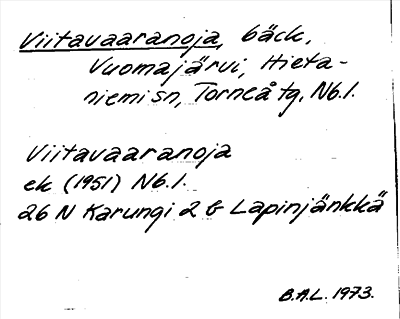 Viitavaaranoja, bäck,
Vuomajärvi, Hieta-
niemi sn, Torneå tg. Nb.l.
Viitavaaranoja
ek (1951) Nb.l.
26 N Karungi 2 b Lapinjänkkä
B.A.L. 1973.